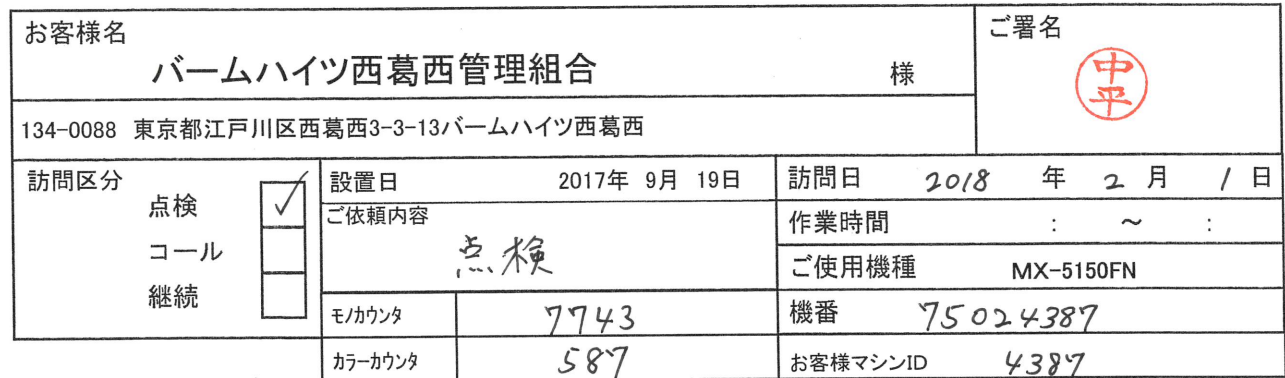 お客様名
バームハイツ西葛西管理組合 様
ご署名
中平
134-0088 東京都江戸川区西葛西3-3-13バームハイツ西葛西
訪問区分
点検
コール
継続
設置日 2017年 9月 19日
ご依頼内容
点検
モノカウンタ 7743
カラーカウンタ 587
訪問日 2018 年 2 月 1 日
作業時間 : ~ :
ご使用機種 MX-5150FN
機番 75024387
お客様マシンID 4387